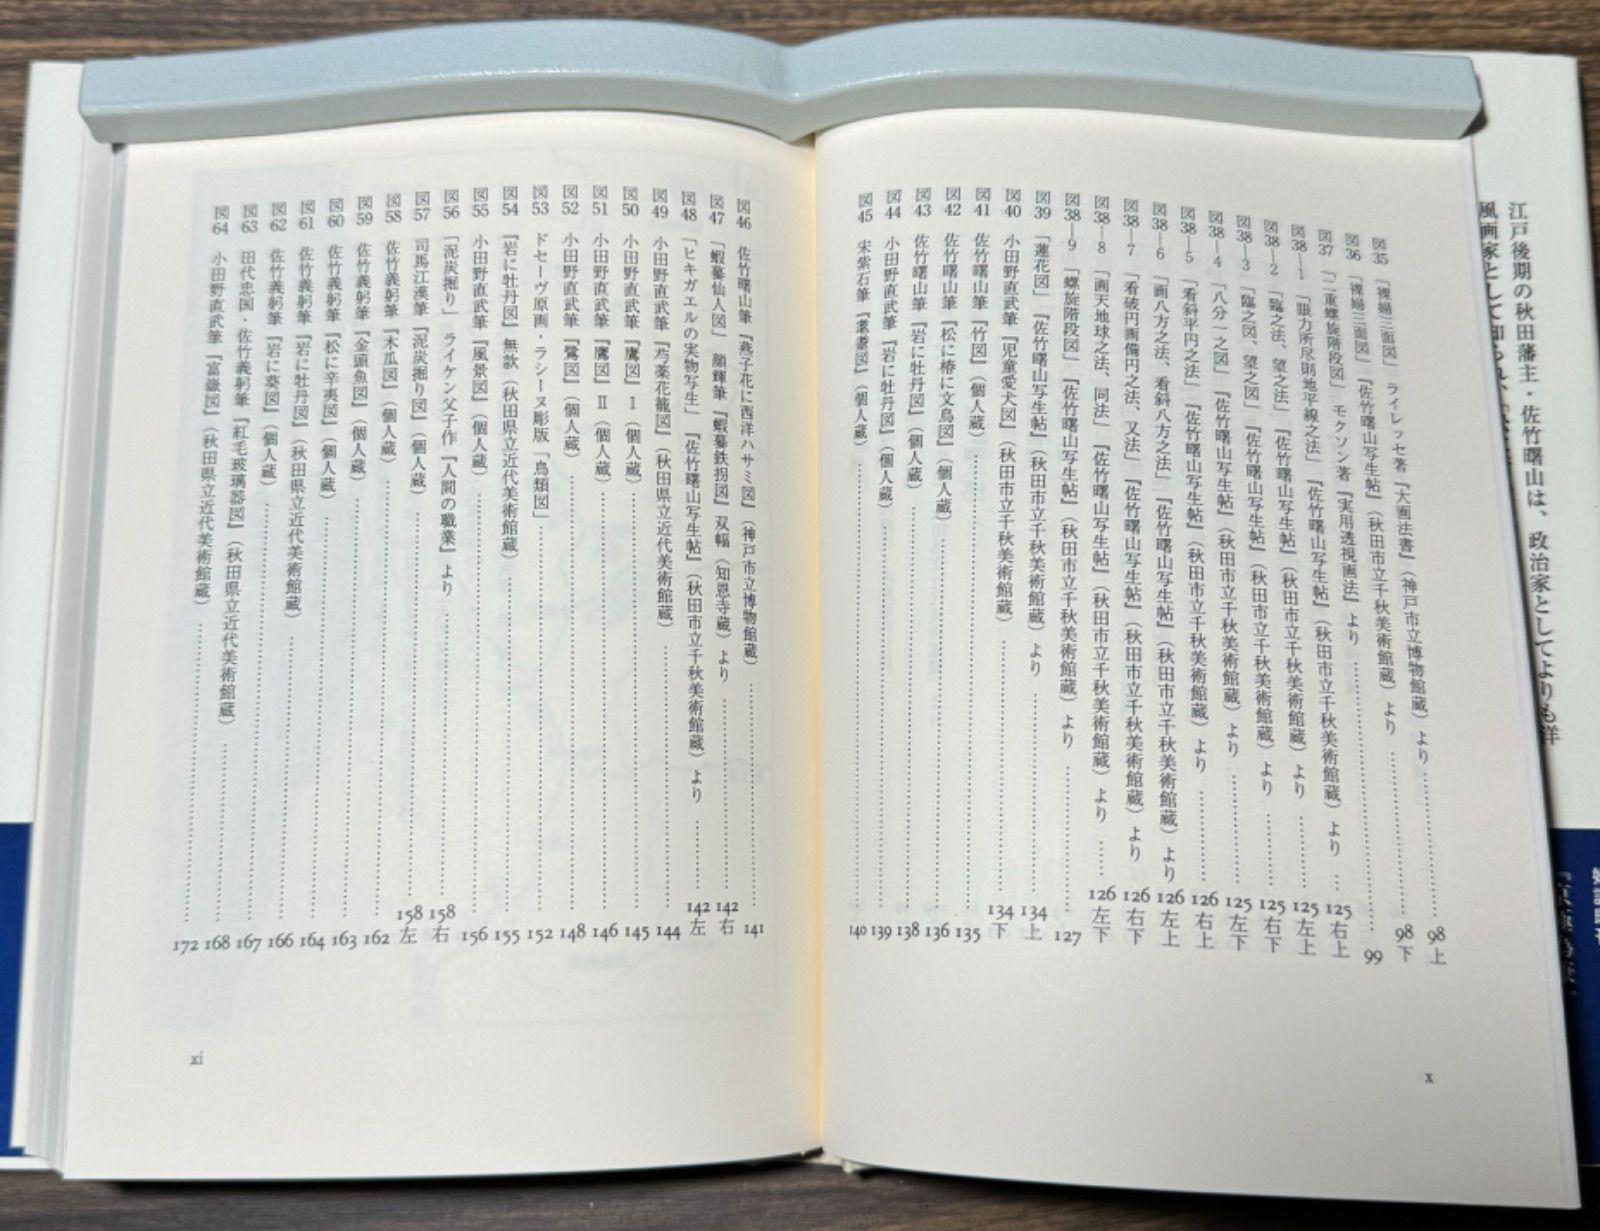 江戸後期の秋田藩主・佐竹曙山は、政治家としてよりも洋
風画家として知られ、
図35 「裸婦三面図」 ライレッセ著『大画法書』（神戸市立博物館蔵）より 98上
図36 「裸婦三面図」『佐竹曙山写生帖』（秋田市立千秋美術館蔵）より 98下
図37 「二重螺旋階段図」 モクソン著『実用透視画法』より 99
図38―1 「眼力所尽則地平線之法」『佐竹曙山写生帖』（秋田市立千秋美術館蔵）より 125右上
図38―2 「臨之法、望之法」『佐竹曙山写生帖』（秋田市立千秋美術館蔵）より 125左上
図38―3 「臨之図、望之図」『佐竹曙山写生帖』（秋田市立千秋美術館蔵）より 125右下
図38―4 「八分一之図」『佐竹曙山写生帖』（秋田市立千秋美術館蔵）より 125左下
図38―5 「看斜平円之法」『佐竹曙山写生帖』（秋田市立千秋美術館蔵）より 126右上
図38―6 「画八方之法、看斜八方之法」『佐竹曙山写生帖』（秋田市立千秋美術館蔵）より 126左上
図38―7 「看破円画備円之法、又法」『佐竹曙山写生帖』（秋田市立千秋美術館蔵）より 126右下
図38―8 「画天地球之法、同法」『佐竹曙山写生帖』（秋田市立千秋美術館蔵）より 126左下
図38―9 「螺旋階段図」『佐竹曙山写生帖』（秋田市立千秋美術館蔵）より 127
図39 「蓮花図」『佐竹曙山写生帖』（秋田市立千秋美術館蔵）より 134上
図40 小田野直武筆『児童愛犬図』（秋田市立千秋美術館蔵） 134下
図41 佐竹曙山筆『竹図』（個人蔵） 135
図42 佐竹曙山筆『松に椿に文鳥図』（個人蔵） 136
図43 佐竹曙山筆『岩に牡丹図』（個人蔵） 138
図44 小田野直武筆『岩に牡丹図』（個人蔵） 139
図45 宋紫石筆『耄耋図』（個人蔵） 140
x
図46 佐竹曙山筆『燕子花に西洋ハサミ図』（神戸市立博物館蔵） 141
図47 「蝦蟇仙人図」 顔輝筆『蝦蟇鉄拐図』双幅（知恩寺蔵）より 142右
図48 「ヒキガエルの実物写生」『佐竹曙山写生帖』（秋田市立千秋美術館蔵）より 142左
図49 小田野直武筆『芍薬花籠図』（秋田県立近代美術館蔵） 144
図50 小田野直武筆『鷹図』Ⅰ（個人蔵） 145
図51 小田野直武筆『鷹図』Ⅱ（個人蔵） 146
図52 小田野直武筆『鷺図』（個人蔵） 148
図53 ドセーヴ原画・ラシーヌ彫版「鳥類図」 152
図54 『岩に牡丹図』無款（秋田県立近代美術館蔵） 155
図55 小田野直武筆『風景図』（個人蔵） 156
図56 「泥炭掘り」 ライケン父子作『人間の職業』より 158右
図57 司馬江漢筆『泥炭掘り図』（個人蔵） 158左
図58 佐竹義躬筆『木瓜図』（個人蔵） 162
図59 佐竹義躬筆『金頭魚図』（個人蔵） 163
図60 佐竹義躬筆『松に辛夷図』（個人蔵） 164
図61 佐竹義躬筆『岩に牡丹図』（秋田県立近代美術館蔵） 166
図62 佐竹義躬筆『岩に葵図』（個人蔵） 167
図63 田代忠国・佐竹義躬筆『紅毛玻璃器図』（秋田県立近代美術館蔵） 168
図64 小田野直武筆『富嶽図』（秋田県立近代美術館蔵） 172
xi